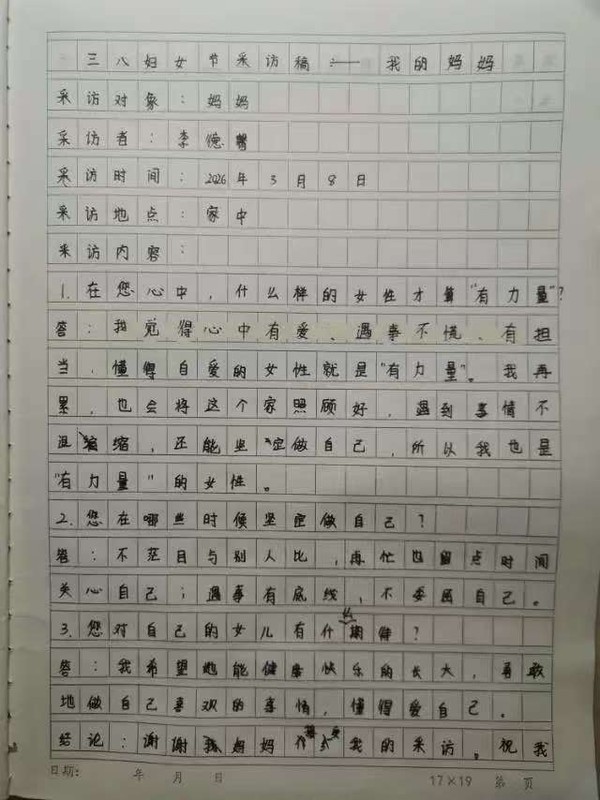 三八妇女节采访稿:——我的妈妈
采访对象:妈妈
采访者:李德馨
采访时间:2026年3月8日
采访地点:家中
采访内容:
1.在您心中,什么样的女性才算“有力量”?
答:我觉得心中有爱、遇事不慌、有担
当,懂得自爱的女性就是“有力量”。我再
累,也会将这个家照顾好,遇到事情不
退缩,还能坚定做自己,所以我也是
“有力量”的女性。
2.您在哪些时候坚定做自己?
答:不茫目与别人比,再忙也留点时间
关心自己;遇事有底线,不委屈自己。
3.您对自己的女儿有什么期待?
答:我希望她能健康快乐的长大,勇敢
地做自己喜欢的事情,懂得爱自己。
结论:谢谢妈妈接受我的采访。祝我
日期: 年 月 日 17×19 第 页